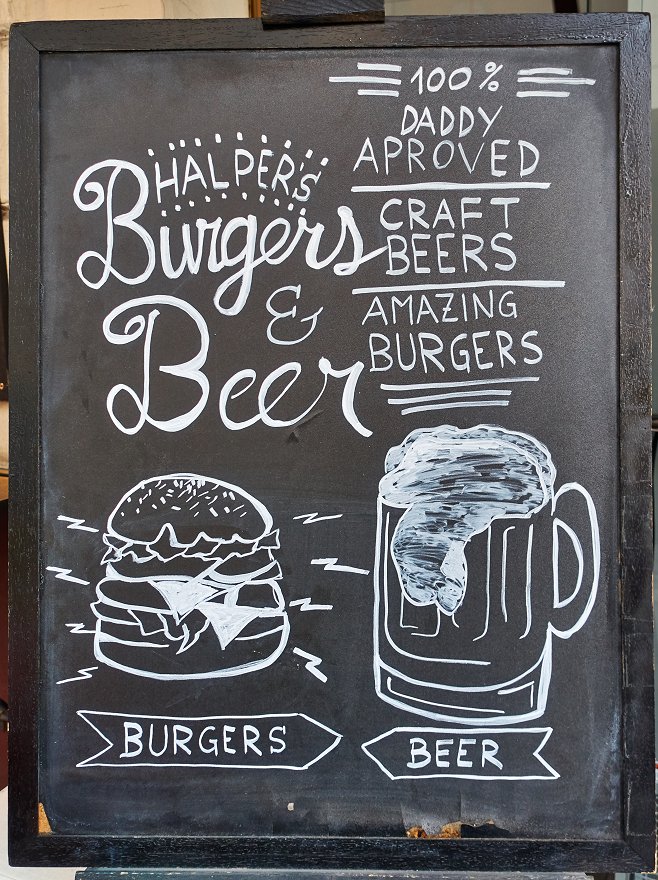 HALPER'S
Burgers
&
Beer
100%
DADDY
APROVED
CRAFT
BEERS
AMAZING
BURGERS
BURGERS
BEER